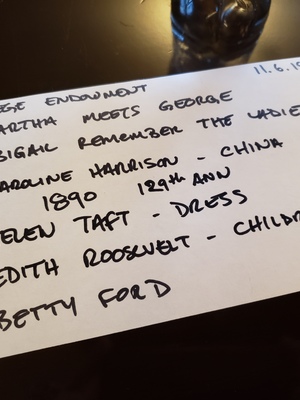 11.6.19
EGE ENDOWMENT
ARTHA MEETS GEORGE
BIGAIL REMEMBER THE LADIE
AROLINE HARRISON - CHINA
1890 129th ANN
ELEN TAFT - DRESS
EDITH ROOSEVELT - CHILDR
BETTY FORD